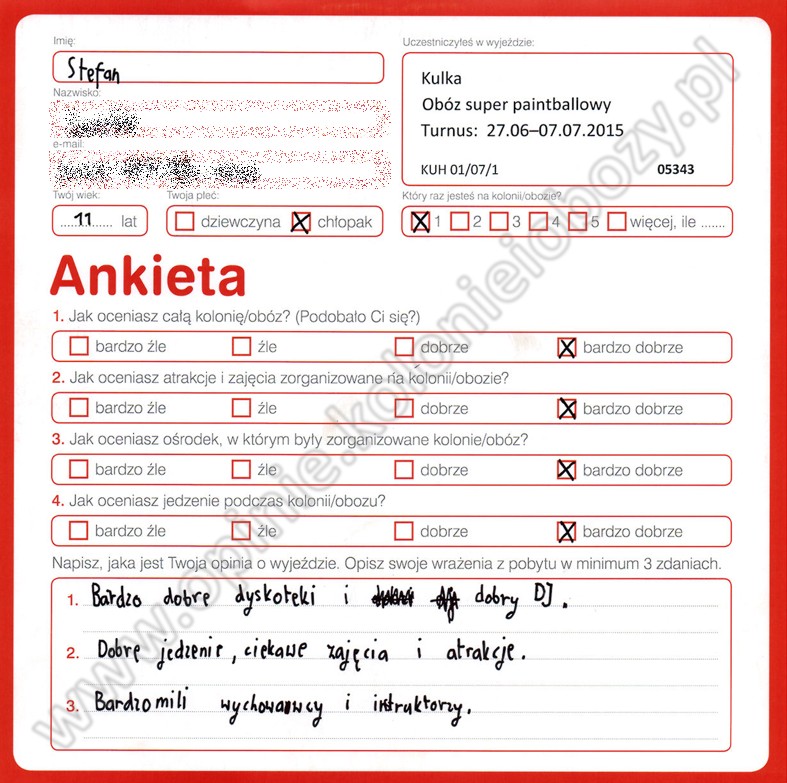 Imię:
Stefan
Uczestniczyłeś w wyjeździe:
Kulka
Obóz super paintballowy
Turnus: 27.06–07.07.2015
KUH 01/07/1 05343
Nazwisko:
e-mail:
Twój wiek:
11 lat
Twoja płeć:
dziewczyna chłopak
Który raz jesteś na kolonii/obozie?
1 2 3 4 5 więcej, ile .......
Ankieta
1. Jak oceniasz całą kolonię/obóz? (Podobało Ci się?)
bardzo źle źle dobrze bardzo dobrze
2. Jak oceniasz atrakcje i zajęcia zorganizowane na kolonii/obozie?
bardzo źle źle dobrze bardzo dobrze
3. Jak oceniasz ośrodek, w którym były zorganizowane kolonie/obóz?
bardzo źle źle dobrze bardzo dobrze
4. Jak oceniasz jedzenie podczas kolonii/obozu?
bardzo źle źle dobrze bardzo dobrze
Napisz, jaka jest Twoja opinia o wyjeździe. Opisz swoje wrażenia z pobytu w minimum 3 zdaniach.
1. Bardzo dobre dyskoteki i dobry DJ.
2. Dobre jedzenie, ciekawe zajęcia i atrakcje.
3. Bardzo mili wychowawcy i instruktorzy.
www.opinie.kolonieiobozy.pl